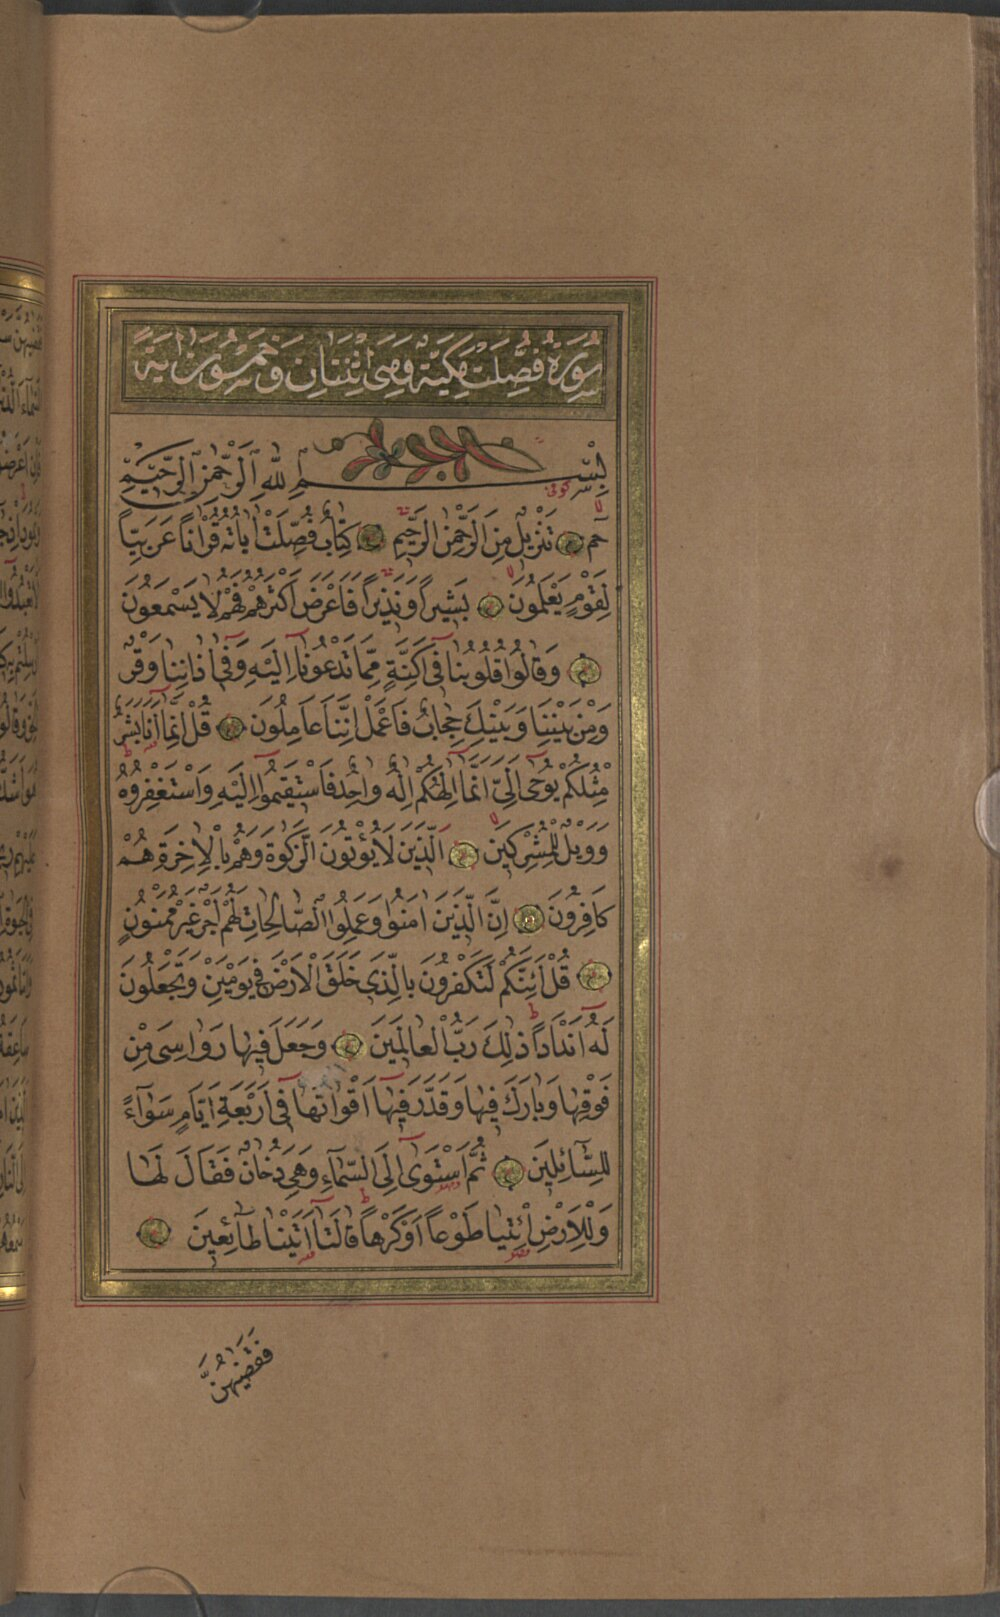 سُورَةُ فُصِّلَتْ مَكِّيَّةٌ وَهِيَ اثْنَتَانِ وَخَمْسُونَ اٰيَةً
بِسْمِ اللّٰهِ الرَّحْمٰنِ الرَّحٖيمِ
كوفى
حٰمٓ تَنْزٖيلٌ مِنَ الرَّحْمٰنِ الرَّحٖيمِ كِتَابٌ فُصِّلَتْ اٰيَاتُهُ قُرْاٰناً عَرَبِيّاً
لِقَوْمٍ يَعْلَمُونَ بَشٖيراً وَنَذٖيراً فَاَعْرَضَ اَكْثَرُهُمْ فَهُمْ لَا يَسْمَعُونَ
وَقَالُوا قُلُوبُنَا فٖٓى اَكِنَّةٍ مِمَّا تَدْعُونَٓا اِلَيْهِ وَفٖٓى اٰذَانِنَا وَقْرٌ
وَمِنْ بَيْنِنَا وَبَيْنِكَ حِجَابٌ فَاعْمَلْ اِنَّنَا عَامِلُونَ قُلْ اِنَّمَٓا اَنَا بَشَرٌ
مِثْلُكُمْ يُوحٰٓى اِلَىَّ اَنَّمَٓا اِلٰهُكُمْ اِلٰهٌ وَاحِدٌ فَاسْتَقٖيمُٓوا اِلَيْهِ وَاسْتَغْفِرُوهُ
وَوَيْلٌ لِلْمُشْرِكٖينَ اَلَّذٖينَ لَا يُؤْتُونَ الزَّكٰوةَ وَهُمْ بِالْاٰخِرَةِ هُمْ
كَافِرُونَ اِنَّ الَّذٖينَ اٰمَنُوا وَعَمِلُوا الصَّالِحَاتِ لَهُمْ اَجْرٌ غَيْرُ مَمْنُونٍ
قُلْ اَئِنَّكُمْ لَتَكْفُرُونَ بِالَّذٖى خَلَقَ الْاَرْضَ فٖى يَوْمَيْنِ وَتَجْعَلُونَ
لَهُٓ اَنْدَاداً ذٰلِكَ رَبُّ الْعَالَمٖينَ وَجَعَلَ فٖيهَا رَوَاسِىَ مِنْ
فَوْقِهَا وَبَارَكَ فٖيهَا وَقَدَّرَ فٖيهَٓا اَقْوَاتَهَا فٖٓى اَرْبَعَةِ اَيَّامٍ سَوَٓاءً
لِلسَّٓائِلٖينَ ثُمَّ اسْتَوٰٓى اِلَى السَّمَٓاءِ وَهِىَ دُخَانٌ فَقَالَ لَهَا
وَلِلْاَرْضِ ائْتِيَا طَوْعاً اَوْ كَرْهاً قَالَتَٓا اَتَيْنَا طَٓائِعٖينَ
فَقَضٰيهُنَّ